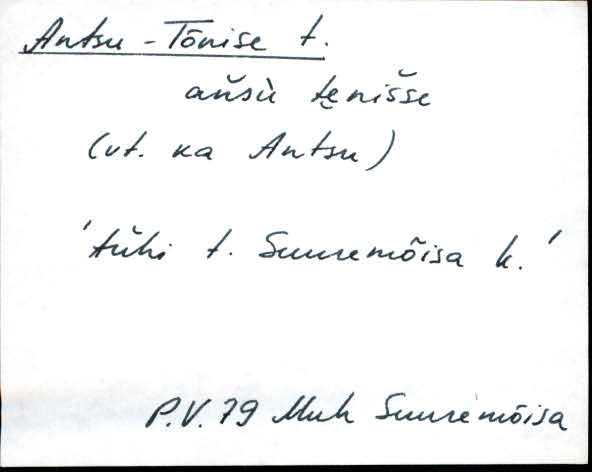 Antsu-Tõnise t.
aňsù tęnišše
(vt. ka Antsu)
'tühi t. Suuremõisa k.'
P.V. 79 Muh Suuremõisa